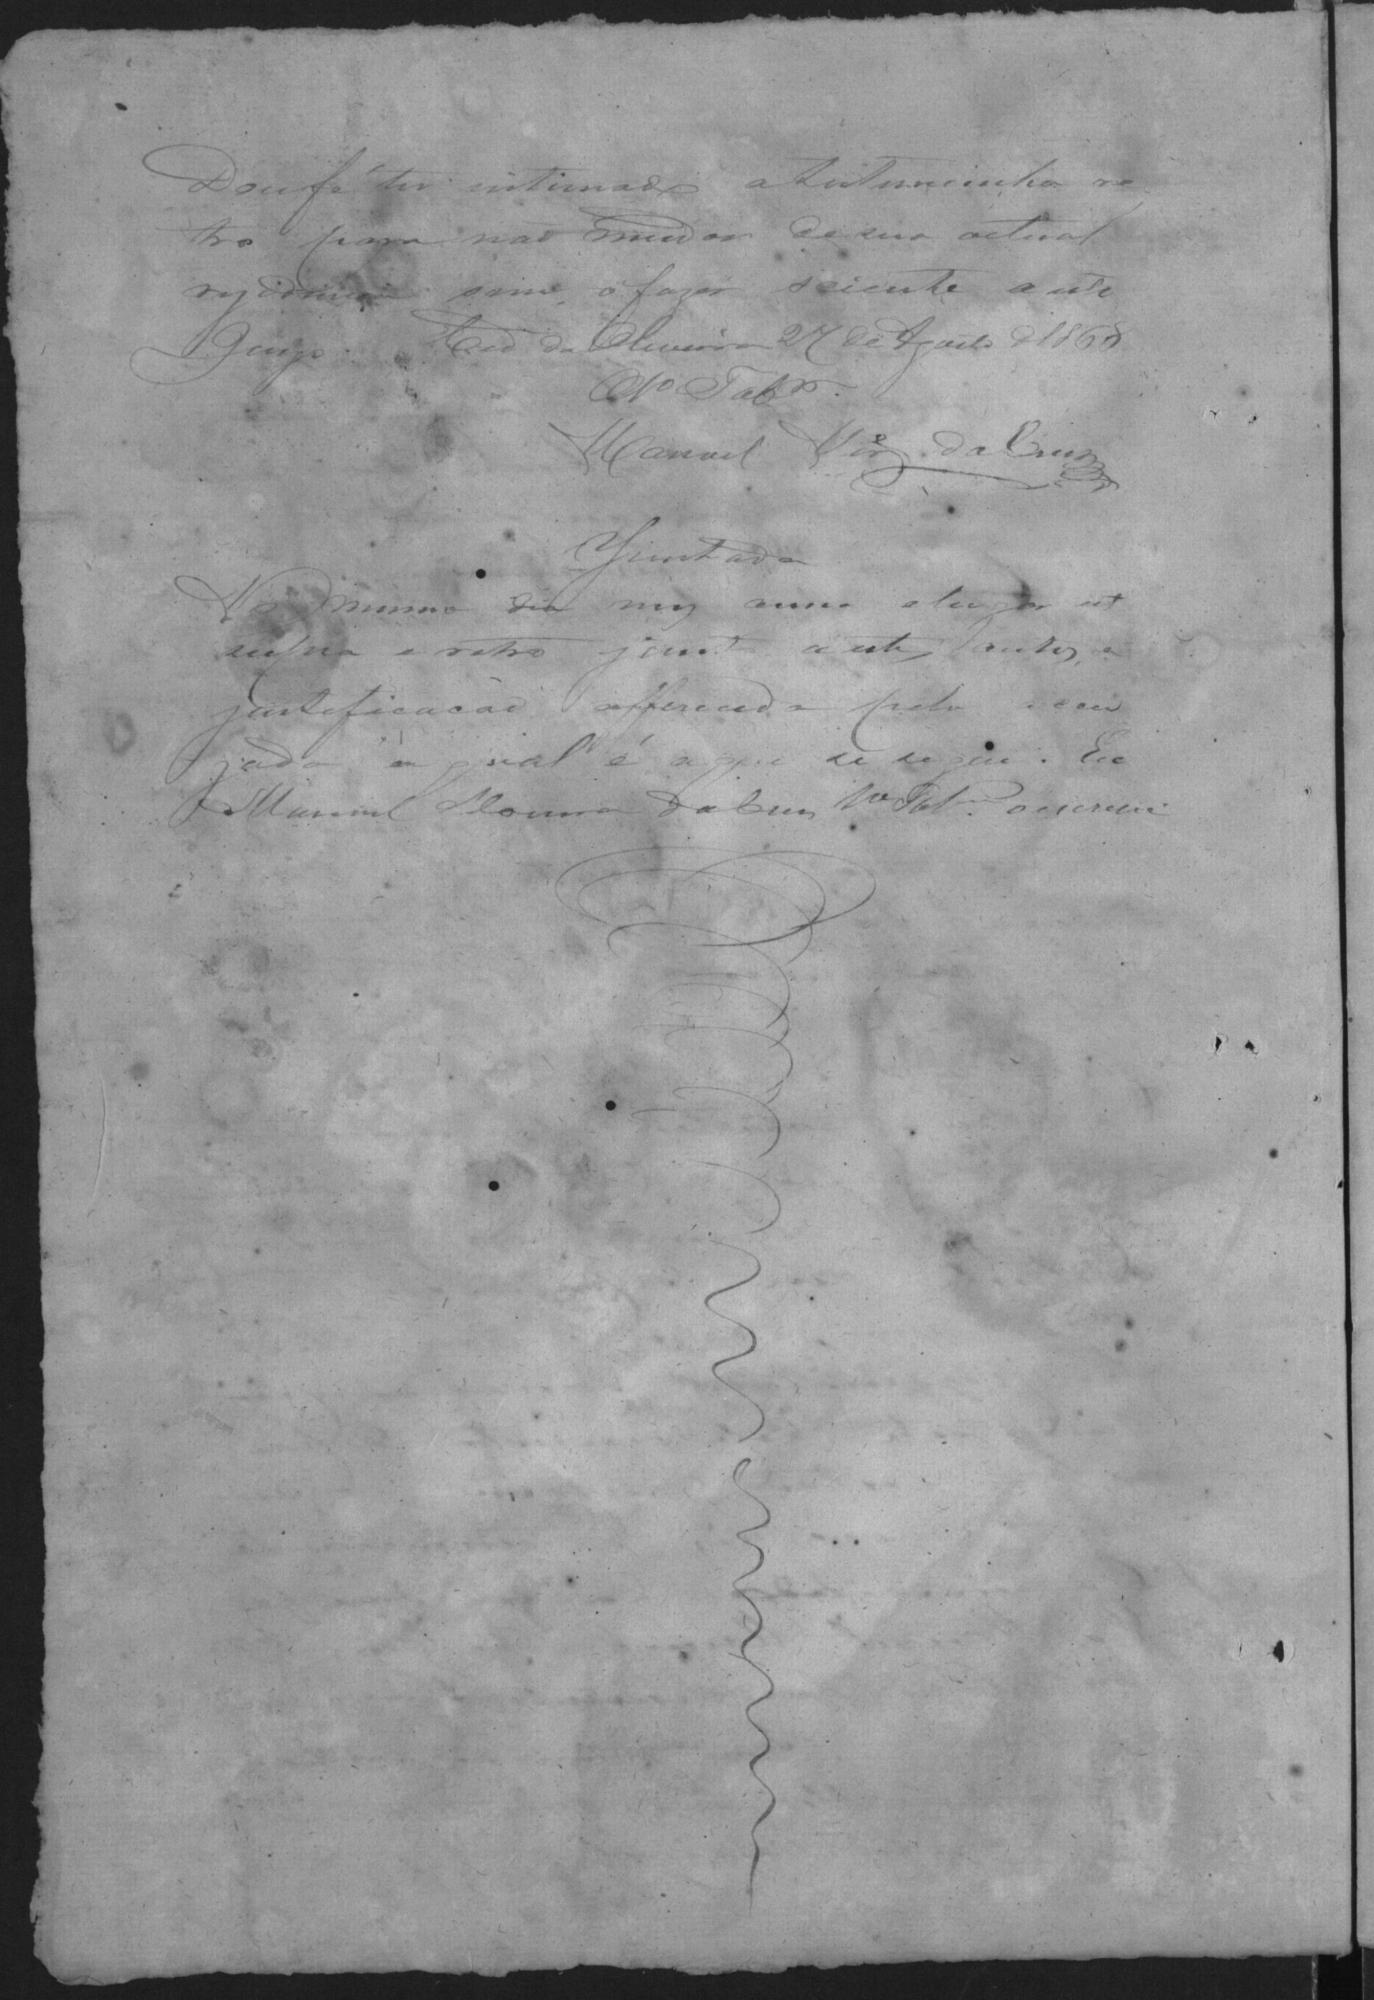 Dou fé ter intimado a testemunha re
tro para não mudar de sua actual
rezidencia sem o fazer sciente a este
Juizo. da Oliveira 27 de Agosto de 1868
O 1º Tabm.
Manoel da Cruz
Juntada
No mesmo dia mez anno e lugar ut
supra e retro junto a estes autos, a
justificacão offerecida pelo accu
zado a qual é a que se segue. Eu
Manoel da Cruz 1º Tabm. o escrevi